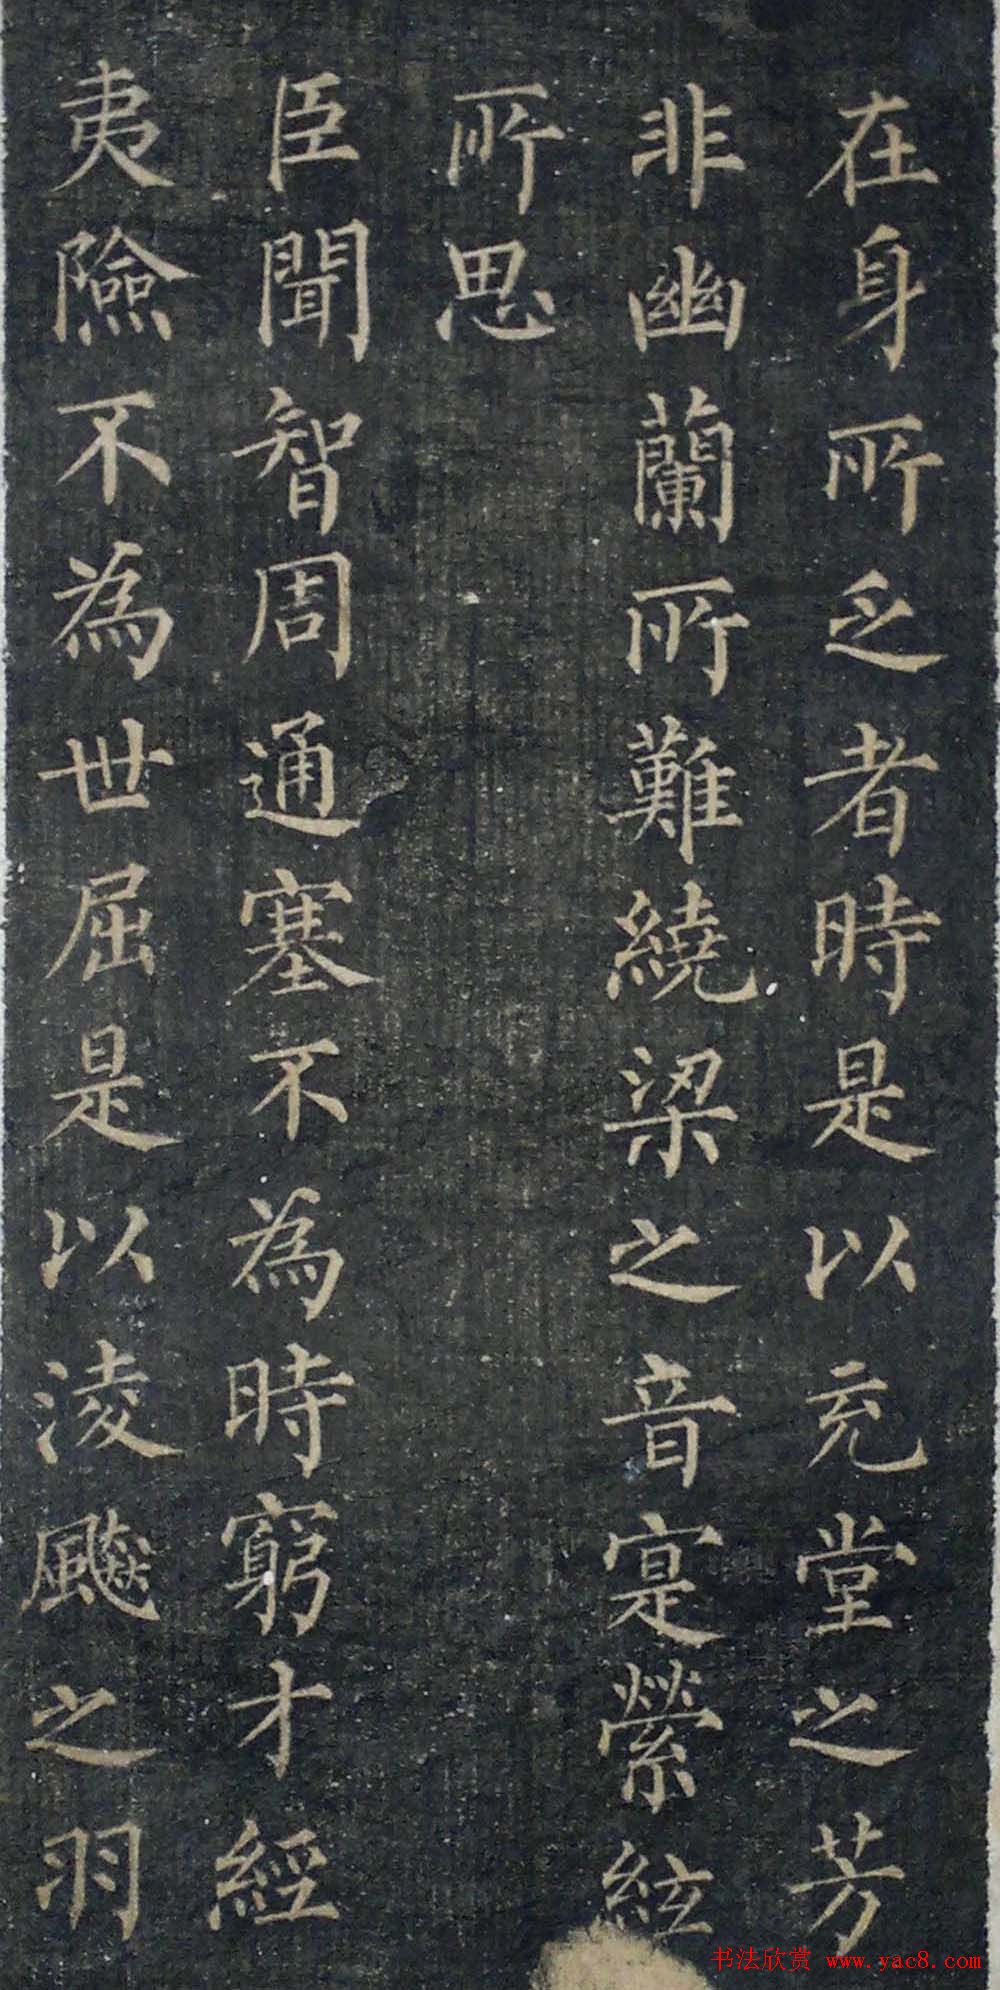 在身所乏者時是以充堂之芳
非幽蘭所難繞梁之音寔縈絃
所思
臣聞智周通塞不為時窮才經
夷險不為世屈是以淩飇之羽
书法欣赏 www.yac8.com